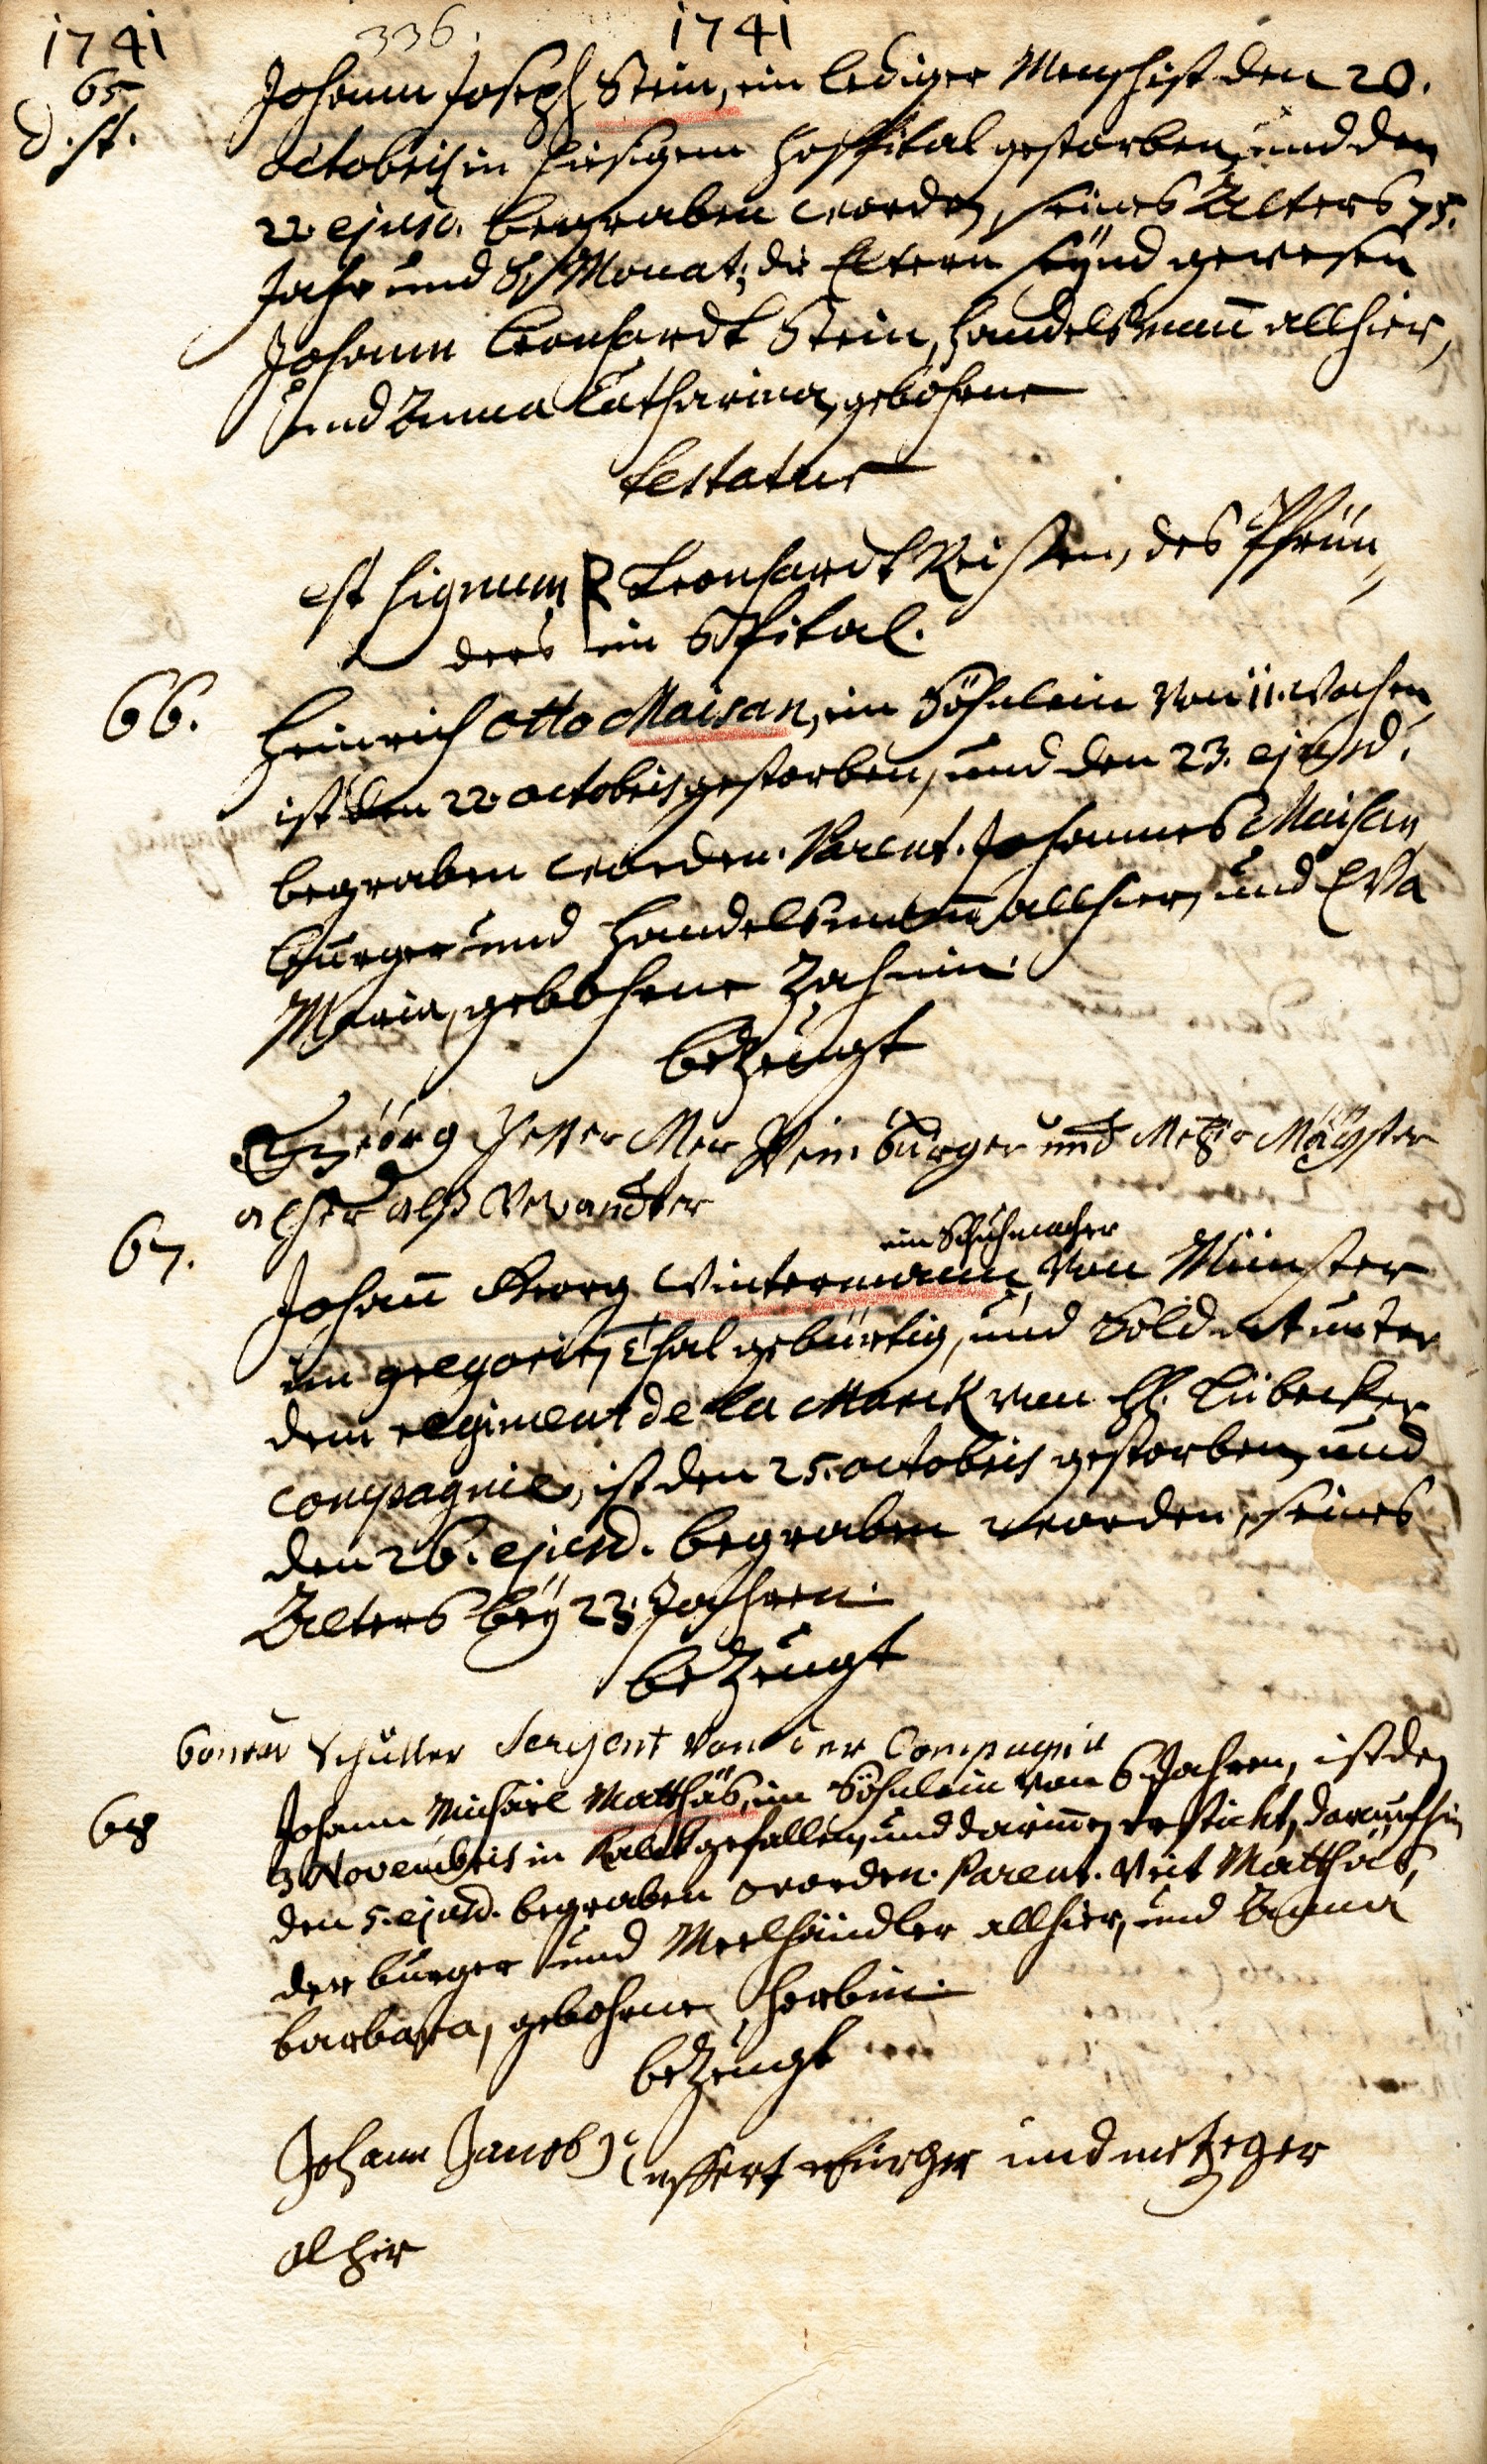 1741 336. 1741
65
d. st.
Johann Joseph Stein, ein lediger Mensch ist den 20.
octobris in hiesigem Hospital gestorben, und den
22. ejusd. begraben worden, seines Alters 75.
Jahr und 8. Monat; die Eltern seÿnd gewesen
Johann Leonhardt Stein, Handelsmañ allhier,
und Anna Catharina, gebohrne
testatur
est signum Leonhardt des Pfrün,
ders im Spital.
66.
Heinrich Otto Maisan, ein Söhnlein von 11. Wochen
ist den 22. octobris gestorben, und den 23. ejusd.
begraben worden. Parent. Johannes Maisan
burger und Handelsmañ allhier, und Eva
Maria, gebohrne Zahnin.
bezeugt
Geörg Petter burger und Metzger Mäyster
alhier alß Verwandter
67.
ein Schuhmacher
Johañ Georg Wintermann, von Münster
im gregorien Thal gebürtig, und Soldat unter
dem regiment de la Marck von H. Lübecker
compagnie, ist den 25. octobris gestorben, und
den 26. ejusd. begraben worden, seines
Alters beÿ 23. Jahren.
bezeugt
Schutter Sergent von der Compagnie
68
Johann Michael Matthäs, ein Söhnlein von 6 Jahren, ist den
3 Novembris in Kalck gefallen, und darinnen erstickt, daraufhin
den 5. ejusd. begraben worden. Parent. Veit Matthäs,
der burger und Meelhändler allhier, und Anna
barbara, gebohrne Herbin.
bezeugt
Johann Jacob bürger und metzger
alhir